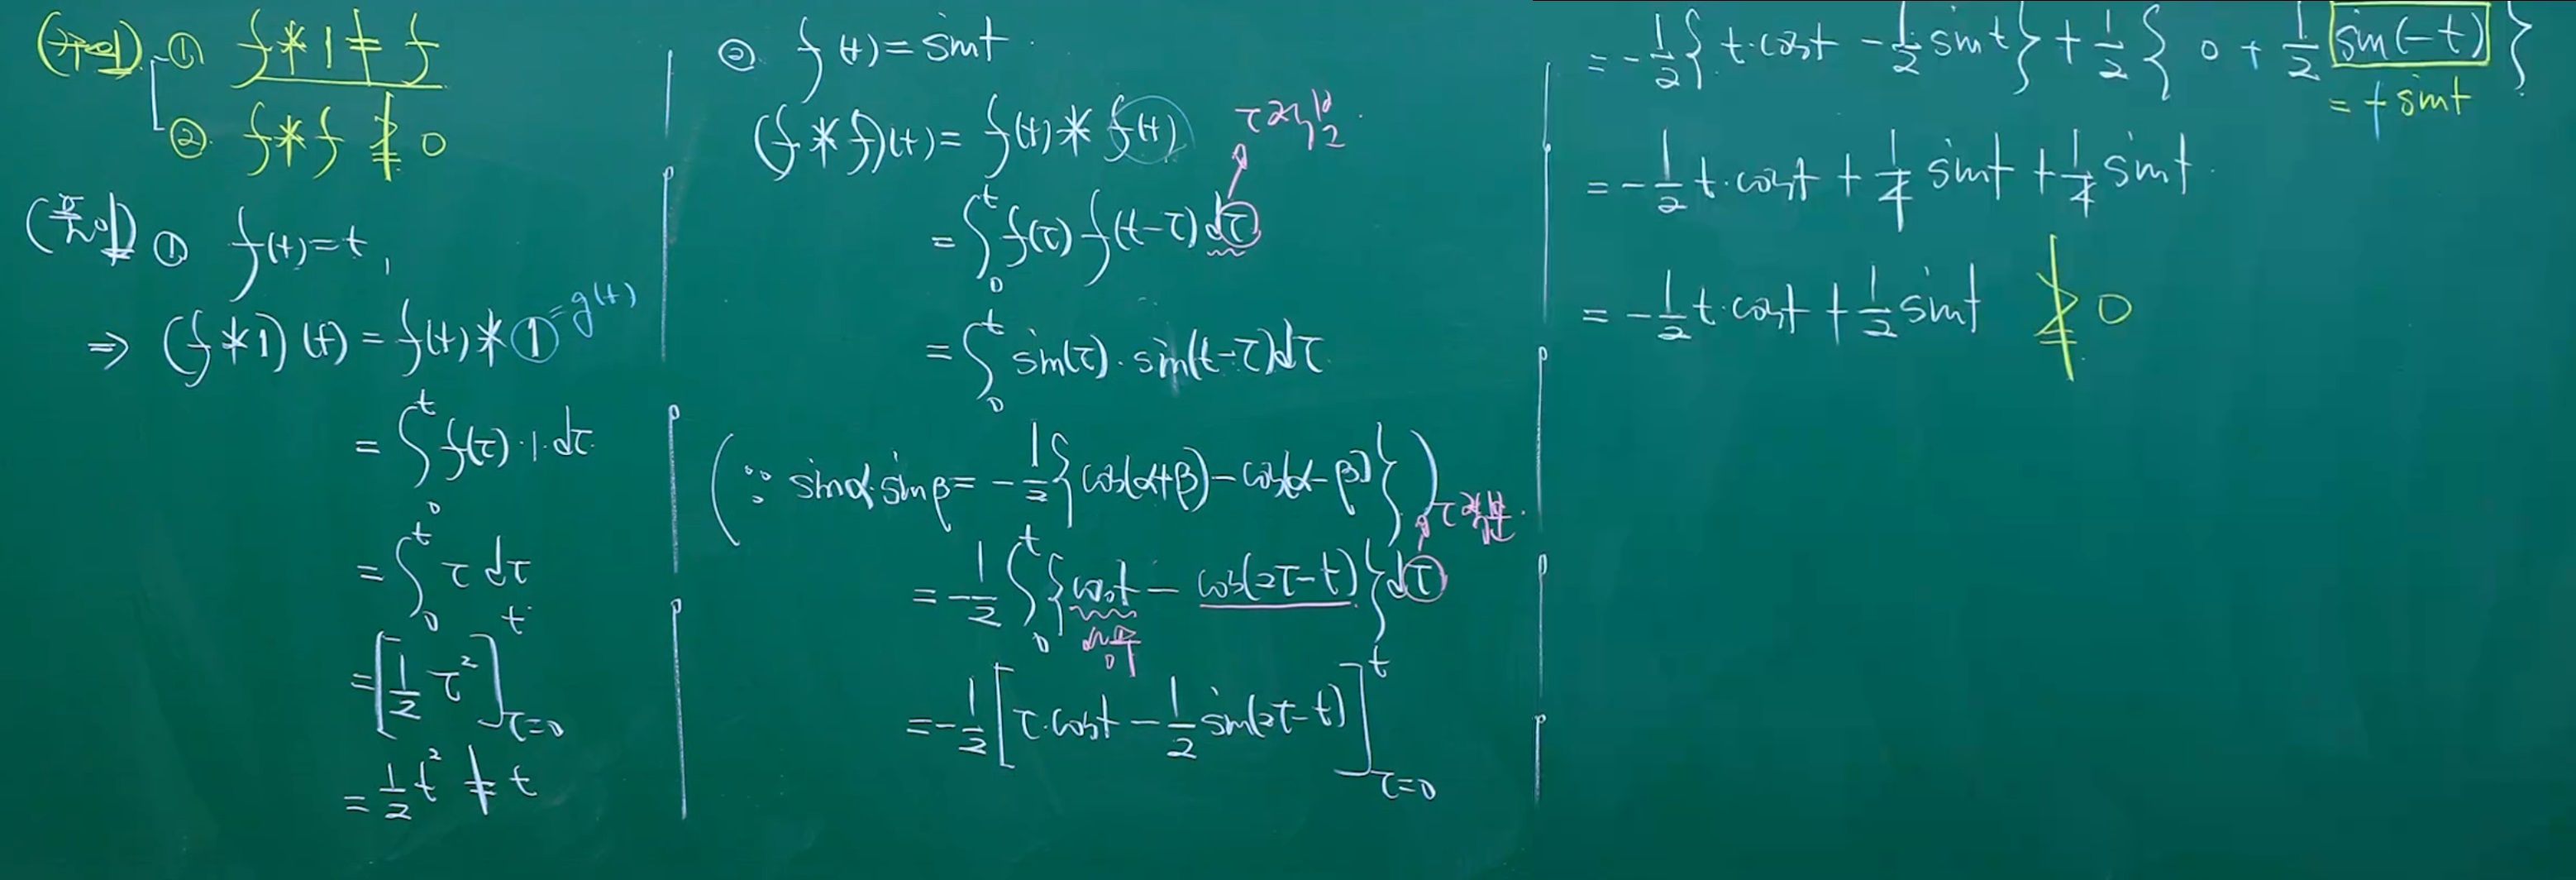 (주의) ① f * 1 ≠ f
② f * f ≱ 0
(풀이) ① f(t) = t,
⇒ (f * 1)(t) = f(t) * 1 = g(t)
= ∫₀ᵗ f(τ)·1·dτ
= ∫₀ᵗ τ dτ
= [1/2 τ²]ᵗ τ=0
= 1/2 t² ≠ t
② f(t) = sint
(f * f)(t) = f(t) * f(t)
= ∫₀ᵗ f(τ) f(t-τ) dτ
τ적분
= ∫₀ᵗ sin(τ)·sin(t-τ)dτ
(∵ sinα·sinβ = -1/2{cos(α+β)-cos(α-β)})
= -1/2 ∫₀ᵗ {cost - cos(2τ-t)}dτ
상수
= -1/2 [τ·cost - 1/2 sin(2τ-t)]ᵗ τ=0
= -1/2{t·cost - 1/2 sint} + 1/2{0 + 1/2 sin(-t)}
= -sint
= -1/2 t·cost + 1/4 sint + 1/4 sint
= -1/2 t·cost + 1/2 sint ≱ 0